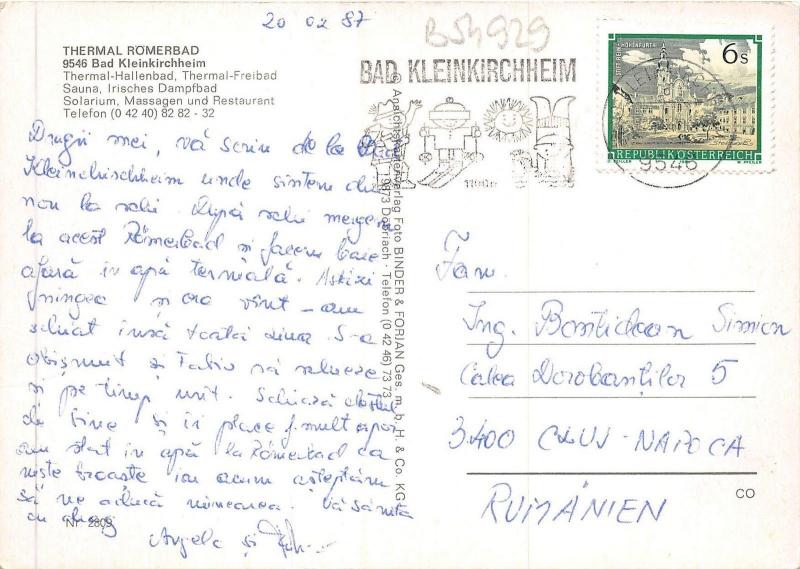 20 02 87
B54929
THERMAL RÖMERBAD
9546 Bad Kleinkirchheim
Thermal-Hallenbad, Thermal-Freibad
Sauna, Irisches Dampfbad
Solarium, Massagen und Restaurant
Telefon (0 42 40) 82 82 - 32
BAD KLEINKIRCHHEIM
STIFT REIN-HOHENFURTH
6s
REPUBLIK ÖSTERREICH
9546
Dragii mei, vă scriu de la Bad
Kleinkirchheim unde sîntem din
nou la schi. După schi mergem
la acest Römerbad și facem baie
afară în apă termală. Astăzi
ningea și era vînt - am
schiat însă toată ziua. S-a
obișnuit și Fabio să schieze
și pe timp urît. Schiază destul
de bine și îi place f. mult apoi
am stat în apă la Römerbad ca
niște broaște iar acum așteptăm
să ne aducă mîncarea. Vă sărută
cu drag
Angela și
Nr 2809
© Ansichtskartenverlag Foto BINDER & FORJAN Ges. m. b. H. & Co. KG
9873 Döbriach - Telefon (0 42 46) 73 73
Fam.
Ing. Bontidean Simion
Calea Dorobanților 5
3400 CLUJ-NAPOCA
RUMÄNIEN
CO